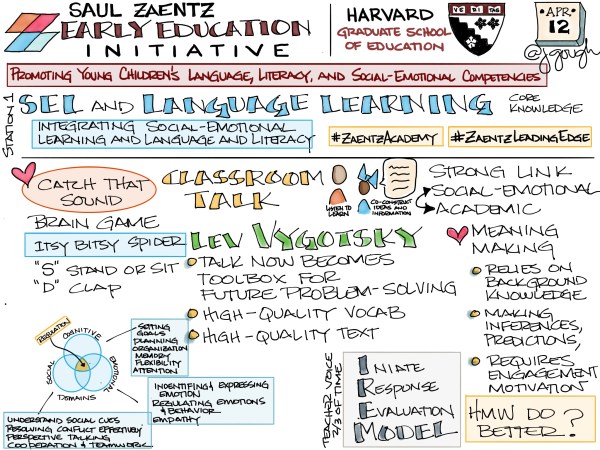 SAUL ZAENTZ
EARLY EDUCATION
INITIATIVE
HARVARD
GRADUATE SCHOOL
OF EDUCATION
VE RI TAS
APR
12
@jgough
PROMOTING YOUNG CHILDREN'S LANGUAGE, LITERACY, AND SOCIAL-EMOTIONAL COMPETENCIES
STATION 1
SEL AND LANGUAGE LEARNING
CORE
KNOWLEDGE
INTEGRATING SOCIAL-EMOTIONAL
LEARNING AND LANGUAGE AND LITERACY
#ZAENTZACADEMY
#ZAENTZLEADINGEDGE
CATCH THAT
SOUND
BRAIN GAME
ITSY BITSY SPIDER
"S" STAND OR SIT
"D" CLAP
CLASSROOM
TALK
LISTEN TO
LEARN
CO-CONSTRUCT
IDEAS AND
INFORMATION
STRONG LINK
SOCIAL-EMOTIONAL
ACADEMIC
LEV VYGOTSKY
TALK NOW BECOMES
TOOLBOX FOR
FUTURE PROBLEM-SOLVING
HIGH-QUALITY VOCAB
HIGH-QUALITY TEXT
MEANING
MAKING
RELIES ON
BACKGROUND
KNOWLEDGE
MAKING
INFERENCES,
PREDICTIONS,
REQUIRES
ENGAGEMENT
MOTIVATION
HMW DO
BETTER?
REGULATION
COGNITIVE
SOCIAL
EMOTIONAL
DOMAINS
SETTING
GOALS
PLANNING
ORGANIZATION
MEMORY
FLEXIBILITY
ATTENTION
INDENTIFING & EXPRESSING
EMOTION
REGULATING EMOTIONS
& BEHAVIOR
EMPATHY
UNDERSTAND SOCIAL CUES
RESOLVING CONFLICT EFFECTIVELY
PERSPECTIVE TALKING
COOPERATION & TEAMWORK
TEACHER VOICE
2/3 OF TIME
INIATE
RESPONSE
EVALUATION
MODEL